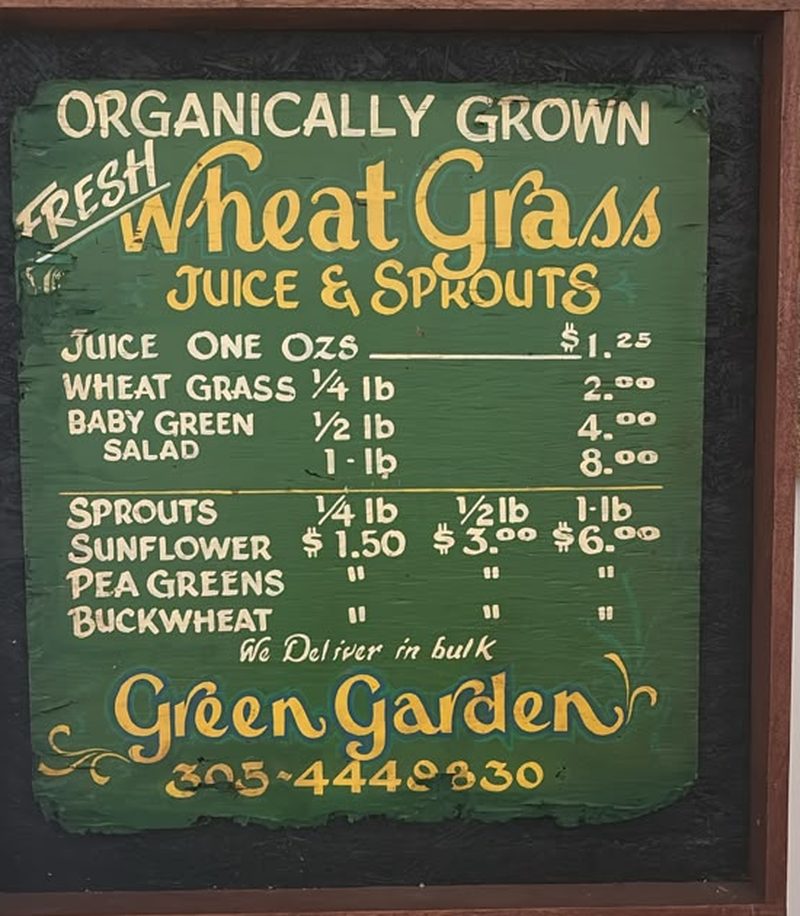 ORGANICALLY GROWN
FRESH
Wheat Grass
JUICE & SPROUTS
JUICE ONE OZS $1.25
WHEAT GRASS 1/4 lb 2.00
BABY GREEN 1/2 lb 4.00
SALAD
1-lb 8.00
SPROUTS 1/4 lb 1/2 lb 1-lb
SUNFLOWER $1.50 $3.00 $6.00
PEA GREENS " " "
BUCKWHEAT " " "
We Deliver in bulk
Green Garden